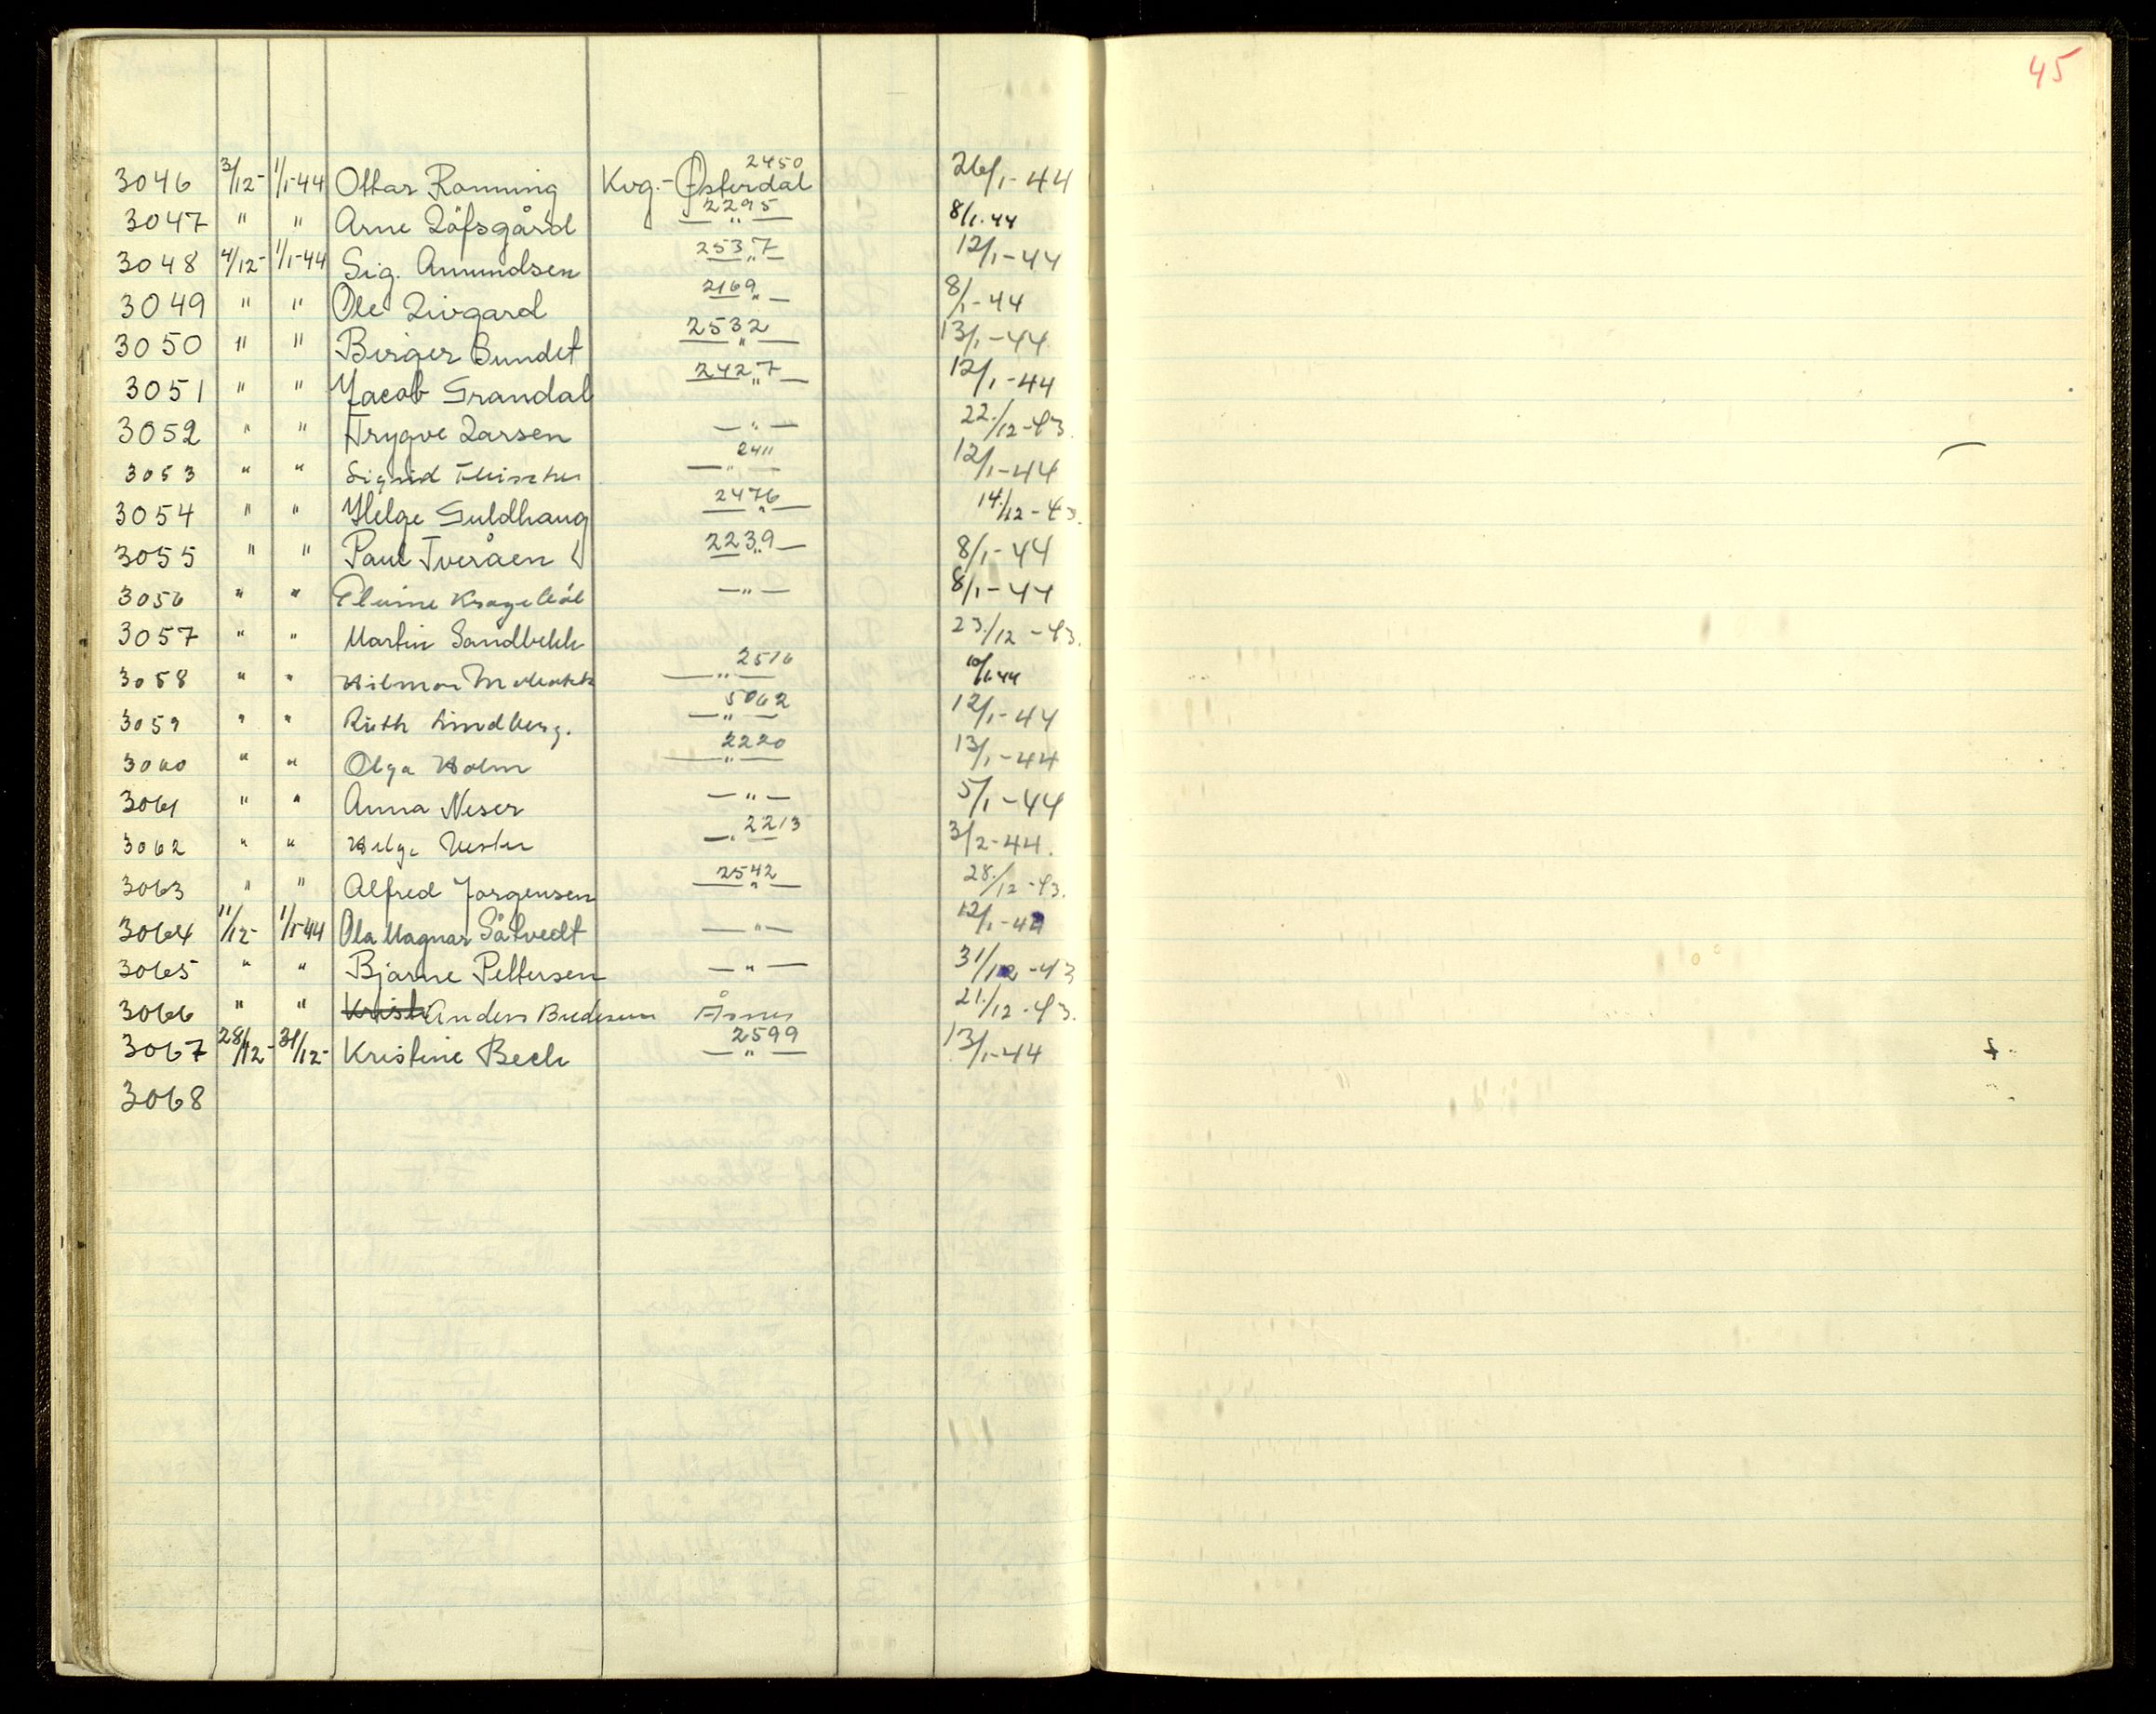 45
3046 3/12- 1/1-44 Ottar Rønning Kvg.-Østerdal 2450 26/1-44
3047 " " Arne Löfsgård 2295 — " — 8/1-44
3048 4/12- 1/1-44 Sig. Amundsen 2537 — " — 12/1-44
3049 " " Ole Livgard 2169 — " — 8/1-44
3050 " " Birger Sundet 2532 — " — 13/1-44
3051 " " Jacob Grandal 2427 — " — 12/1-44
3052 " " Trygve Larsen — " — 22./12-43.
3053 " " Sigrid Fleischer 2411 — " — 12/1-44
3054 " " Helge Guldhaug 2476 — " — 14./12-43.
3055 " " Paul Tveråen 2239 — " — 8/1-44
3056 " " — " — 8/1-44
3057 " " Martin Sandbekk 23./12-43.
3058 " " Hilmar 2516 — " — 10/1-44
3059 " " Ruth Lindberg. 5062 — " — 12/1-44
3060 " " Olga Holm 2220 — " — 13/1-44
3061 " " Anna Neser — " — 5/1-44
3062 " " Helge 2213 — " — 3/2-44.
3063 " " Alfred Jørgensen 2542 — " — 28./12-43.
3064 11/12- 1/1-44 Ola Magnar Såtvedt — " — 12/1-44
3065 " " Bjarne Pettersen — " — 31/12-43
3066 " " Kristi Anders Bredesen Åsnes 21./12-43.
3067 28/12- 31/12- Kristine Bech 2599 — " — 13/1-44
3068